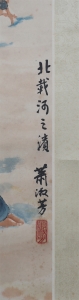 北戴河之濱 蕭淑芳